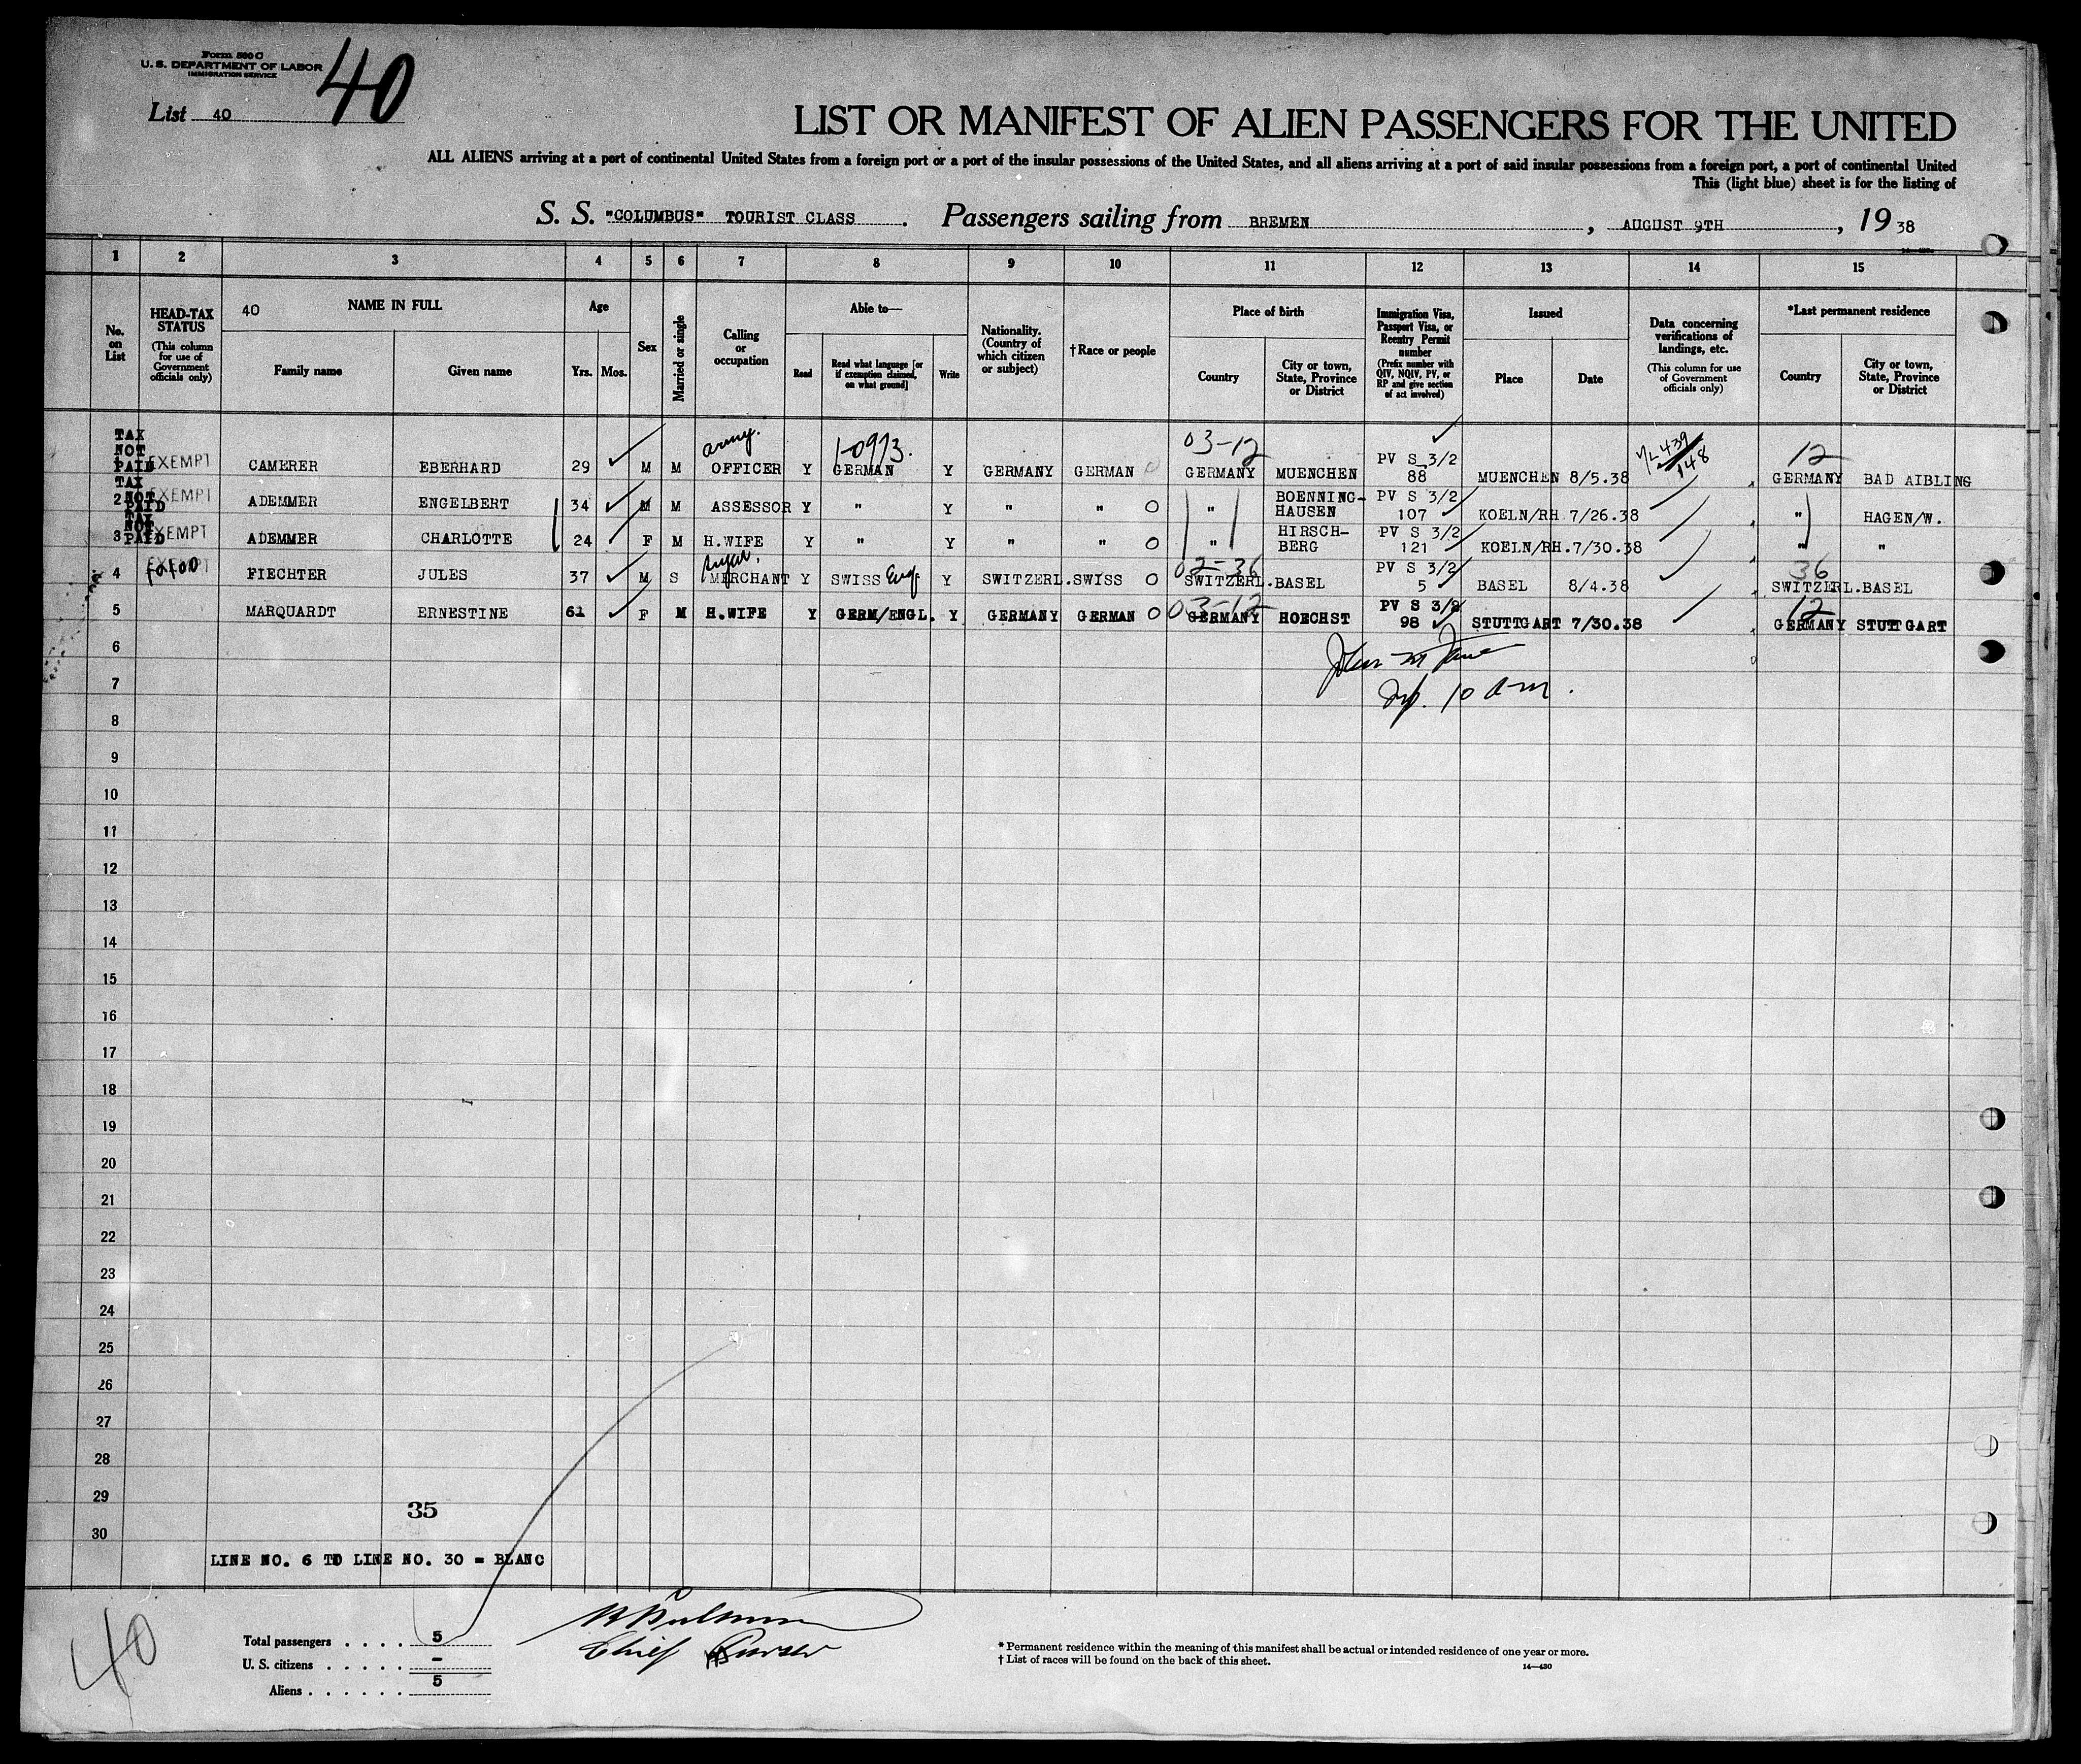 Form 500 C
U. S. DEPARTMENT OF LABOR
IMMIGRATION SERVICE
40
List 40
LIST OR MANIFEST OF ALIEN PASSENGERS FOR THE UNITED
ALL ALIENS arriving at a port of continental United States from a foreign port or a port of the insular possessions of the United States, and all aliens arriving at a port of said insular possessions from a foreign port, a port of continental United
This (light blue) sheet is for the listing of
S. S. "COLUMBUS" TOURIST CLASS . Passengers sailing from BREMEN , AUGUST 9TH , 19 38
1 2 3 4 5 6 7 8 9 10 11 12 13 14 15
No. on List
HEAD-TAX STATUS
(This column for use of Government officials only)
40 NAME IN FULL
Family name Given name
Age
Yrs. Mos.
Sex
Married or single
Calling or occupation
Able to—
Read
Read what language [or if exemption claimed, on what ground]
Write
Nationality. (Country of which citizen or subject)
† Race or people
Place of birth
Country
City or town, State, Province or District
Immigration Visa, Passport Visa, or Reentry Permit number
(Prefix number with QIV, NQIV, PV, or RP and give section of act involved)
Issued
Place Date
Data concerning verifications of landings, etc.
(This column for use of Government officials only)
*Last permanent residence
Country
City or town, State, Province or District
TAX NOT PAID EXEMPT army. 1-0973. 03-12 V/L 439/148 12
1 CAMERER EBERHARD 29 M M OFFICER Y GERMAN Y GERMANY GERMAN O GERMANY MUENCHEN PV S 3/2 88 MUENCHEN 8/5.38 GERMANY BAD AIBLING
TAX NOT PAID EXEMPT
2 ADEMMER ENGELBERT 34 M M ASSESSOR Y " Y " " O " BOENNING-HAUSEN PV S 3/2 107 KOELN/RH 7/26.38 " HAGEN/W.
TAX NOT PAID EXEMPT
3 ADEMMER CHARLOTTE 24 F M H.WIFE Y " Y " " O " HIRSCH-BERG PV S 3/2 121 KOELN/RH. 7/30.38 " "
EXEMPT 02-36 36
4 FIECHTER JULES 37 M S MERCHANT Y SWISS Eng. Y SWITZERL. SWISS O SWITZERL. BASEL PV S 3/2 5 BASEL 8/4.38 SWITZERL. BASEL
03-12 12
5 MARQUARDT ERNESTINE 61 F M H.WIFE Y GERM/ENGL. Y GERMANY GERMAN O GERMANY HOECHST PV S 3/2 98 STUTTGART 7/30.38 GERMANY STUTTGART
6
7 10 am.
8
9
10
11
12
13
14
15
16
17
18
19
20
21
22
23
24
25
26
27
28
29
35
30
LINE NO. 6 TO LINE NO. 30 = BLANC
40
Total passengers . . . . 5
U. S. citizens . . . . . -
Aliens . . . . . . 5
Chief Purser
* Permanent residence within the meaning of this manifest shall be actual or intended residence of one year or more.
† List of races will be found on the back of this sheet.
14—430